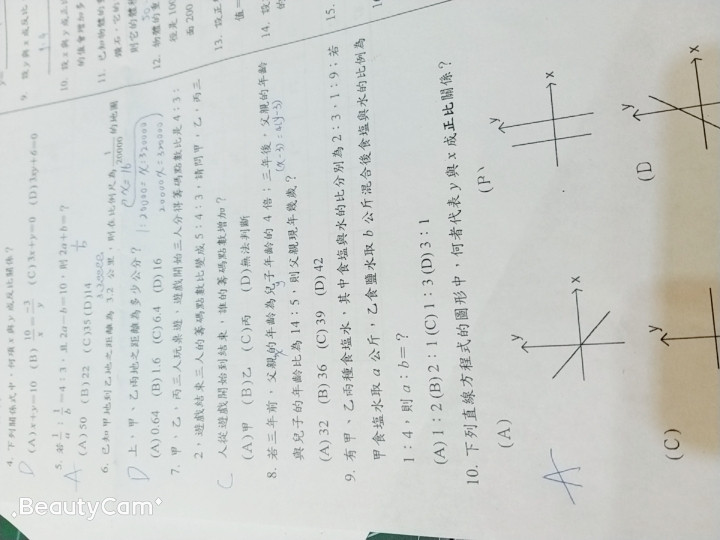 4. 下列關係式中，何項 x 與 y 成反比關係？
D (A) x+y=10 (B) 10/x = -3/y (C) 3x+y=0 (D) 3xy+6=0
A 5. 若 1/a : 1/b = 4：3，且 2a-b=10，則 2a+b=？
(A) 50 (B) 22 (C)35 (D)14
6. 已知甲地到乙地之距離為 3.2 公里，則在比例尺為 1/20000 的地圖
D 上，甲、乙兩地之距離為多少公分？
(A) 0.64 (B) 1.6 (C) 6.4 (D) 16
7. 甲、乙、丙三人玩桌遊，遊戲開始三人分得籌碼點數比是 4：3：
2，遊戲結束三人的籌碼點數比變成 5：4：3，請問甲、乙、丙三
C 人從遊戲開始到結束，誰的籌碼點數增加？
(A)甲 (B)乙 (C)丙 (D)無法判斷
8. 若三年前，父親的年齡為兒子年齡的 4 倍；三年後，父親的年齡
與兒子的年齡比為 14：5，則父親現年幾歲？
(x-3)=4(y-3)
(A) 32 (B) 36 (C) 39 (D) 42
9. 有甲、乙兩種食鹽水，其中食鹽與水的比分別為 2：3，1：9；若
甲食鹽水取 a 公斤，乙食鹽水取 b 公斤混合後食鹽與水的比例為
1：4，則 a：b=？
(A) 1：2 (B) 2：1 (C) 1：3 (D) 3：1
10. 下列直線方程式的圖形中，何者代表 y 與 x 成正比關係？
A
(A) y x
y x
(C) y
(D y x
9. 設 y 與 x 成反比
10. 設 x 與 y 成正
11. 已知物體的
12. 物體的重
13. 設正
14. 設
15.
BeautyCam